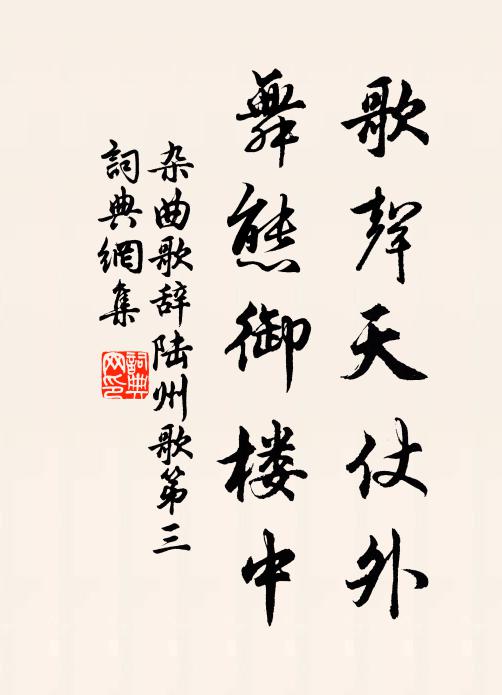 歌聲天仗外
舞態御楼中
杂曲歌辞陆州歌第三
詞典網集
詞典網印